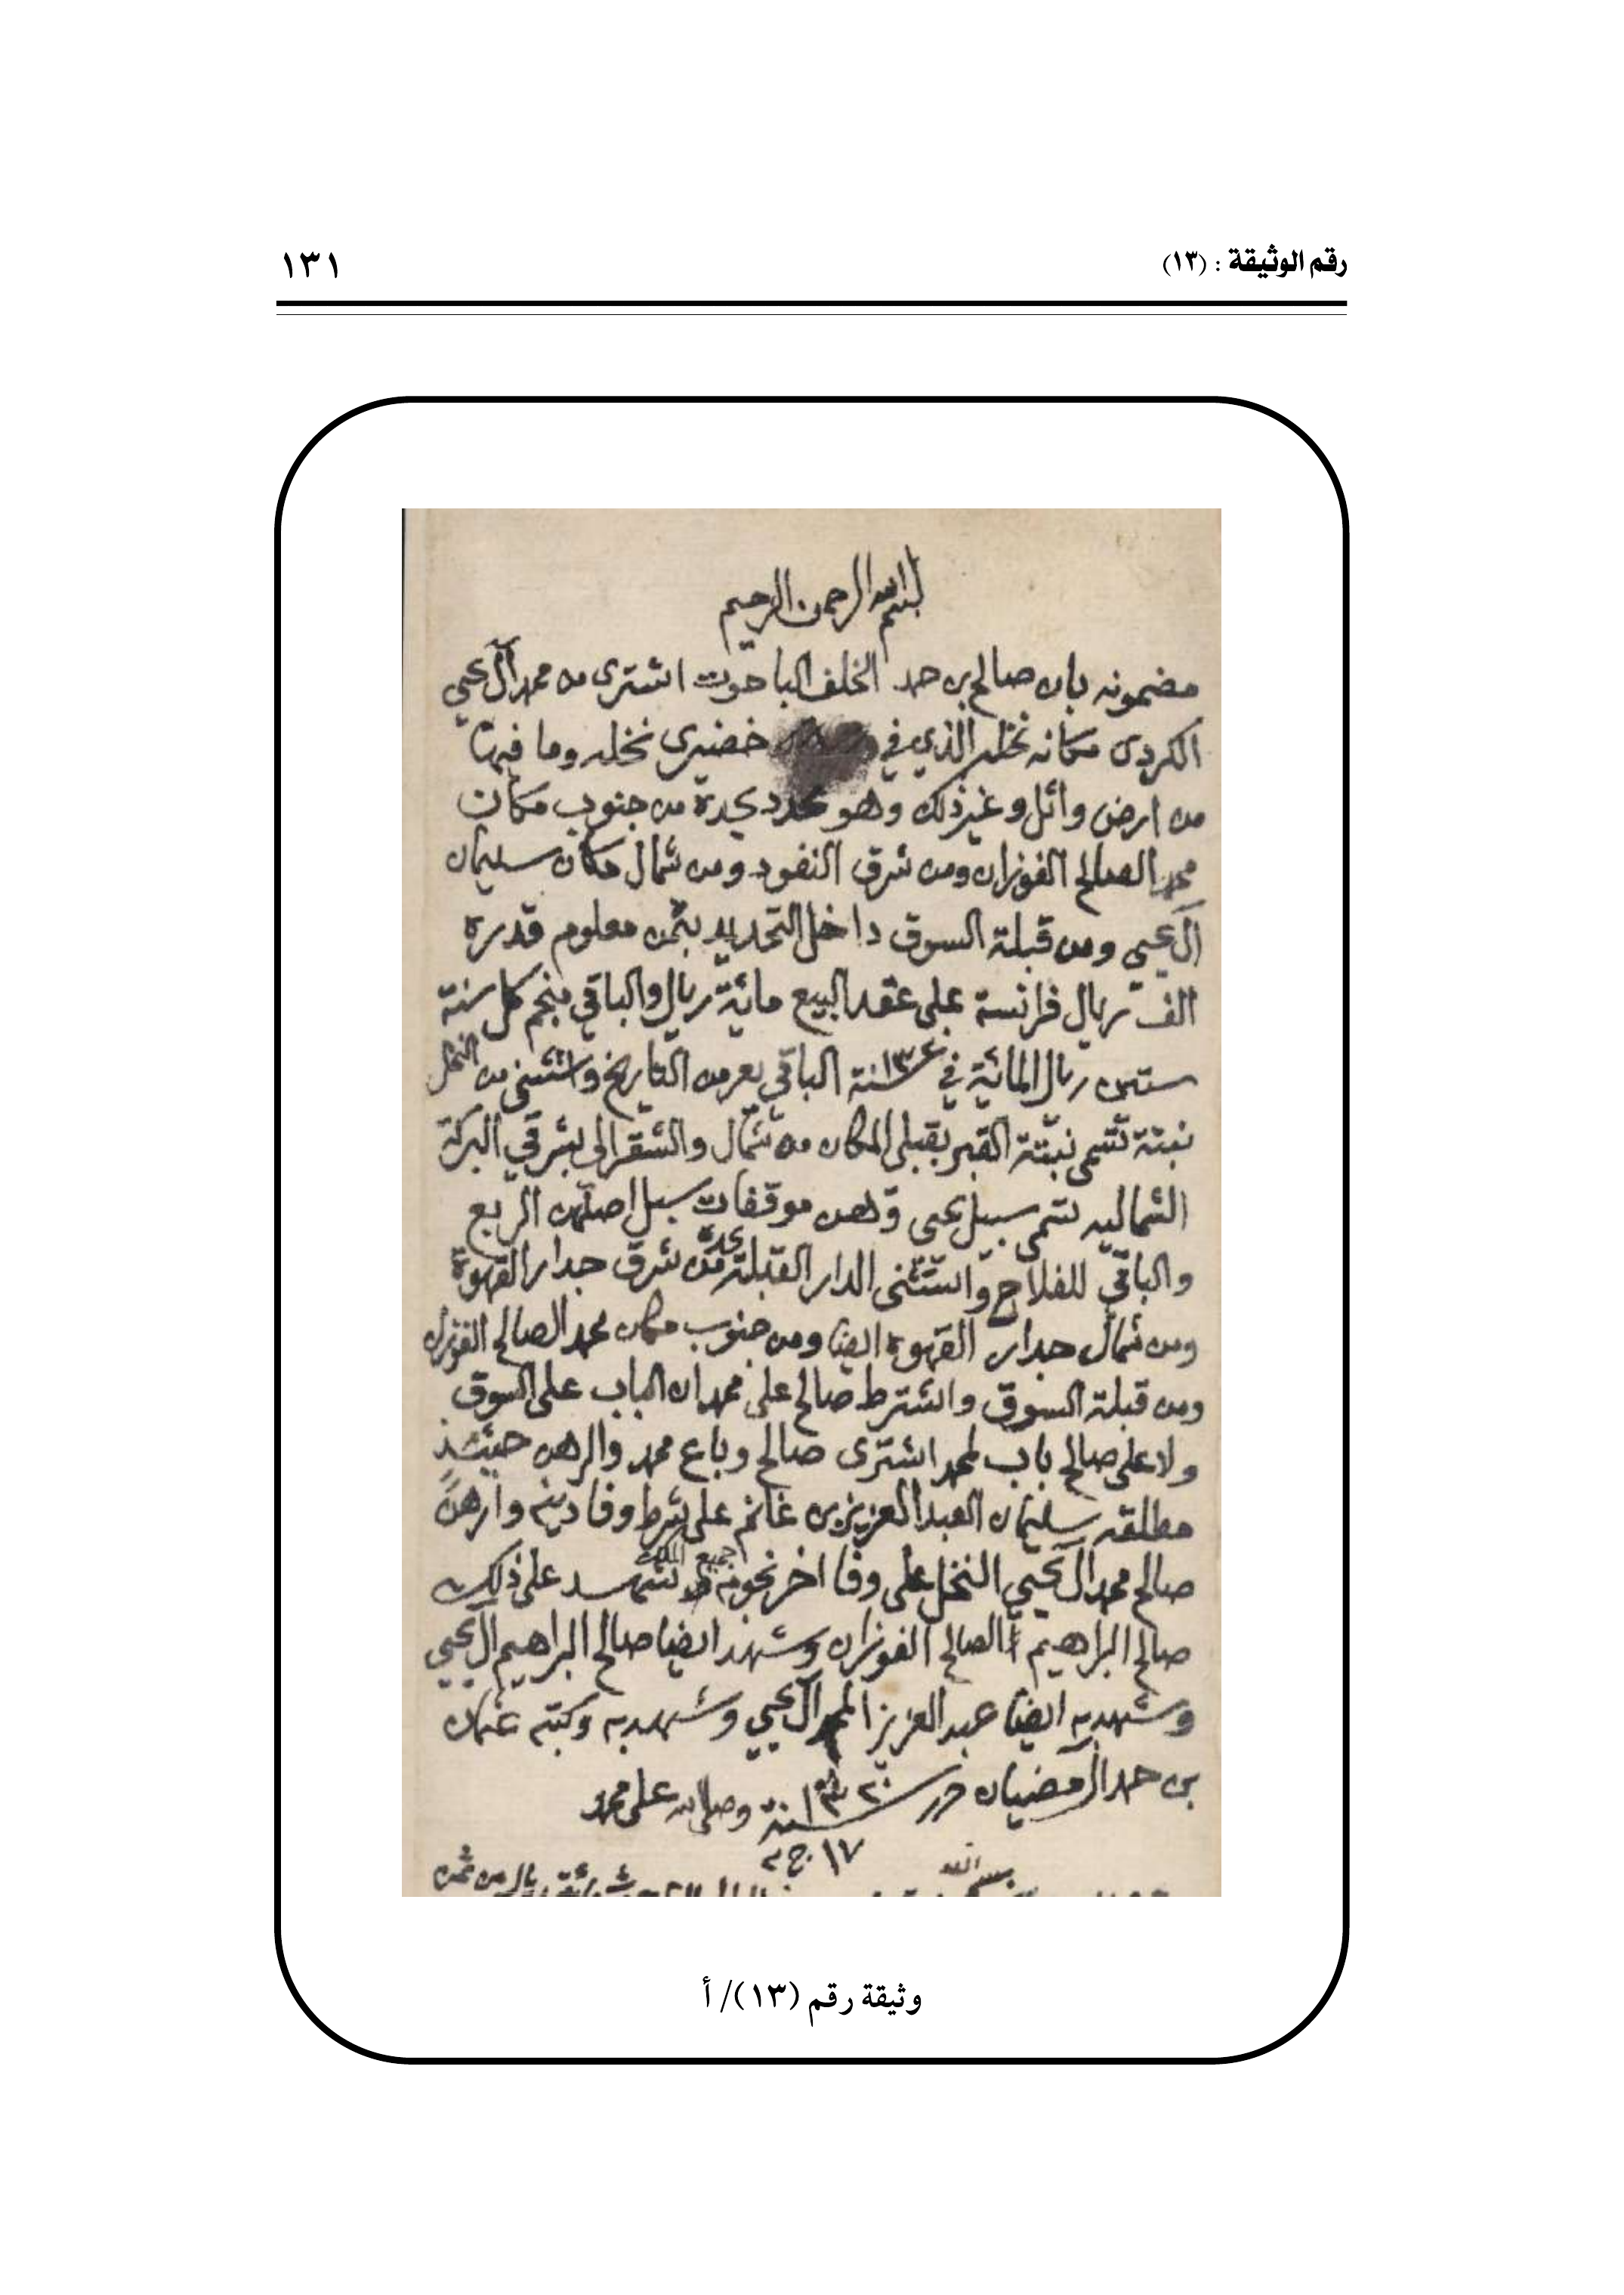 رقم الوثيقة : (١٣)
١٣١
بسم الله الرحمن الرحيم
مضمونه بان صالح بن حمد الخلف الباحوث اشترى من محمد آل يحيى
الكردي مكانه نخله الذي في خضيرى نخله وما فيه
من ارض واثل وغير ذلك وهو محدد يحده من جنوب مكان
محمد الصالح الفوزان ومن شرق النفود ومن شمال مكان سليمان
آل يحيى ومن قبلة السوق داخل التحديد بثمن معلوم قدره
الف ريال فرانسة على عقد البيع مائة ريال والباقي منجم كل سنة
ستين ريال المائة في سنة الباقي بعد من التاريخ واستثنى من النخل
نبتة تسمى نبتة القبر بقبلي المكان من شمال والشقرا لي بشرقي البركة
الشماليه تسمى سبيل يحيى وهن موقفات سبل اصلهن الربع
والباقي للفلاح واستثنى الدار القبلة يحده من شرق جدار القهوة
ومن شمال جدار القهوة ايضا ومن جنوب مكان محمد الصالح الفوزان
ومن قبلة السوق واشترط صالح على محمد ان الباب على السوق
ولا على صالح باب لمحمد اشترى صالح وباع محمد والرهن حينئذ
مطلقه سليمان العبد العزيز بن غانم على شرط وفا دينه وارهن
صالح محمد آل يحيى النخل على وفا اخر نجومه جميع شهد على ذلك
صالح البراهيم الصالح الفوزان وشهد ايضا صالح البراهيم آل يحيى
وشهد به ايضا عبد العزيز المحمد آل يحيى وشهد به وكتبه عثمان
بن حمد آل مضيان حرر سنة وصلى الله على محمد
١٧ ج ٢
بسم الله
وثيقة رقم (١٣)/ أ